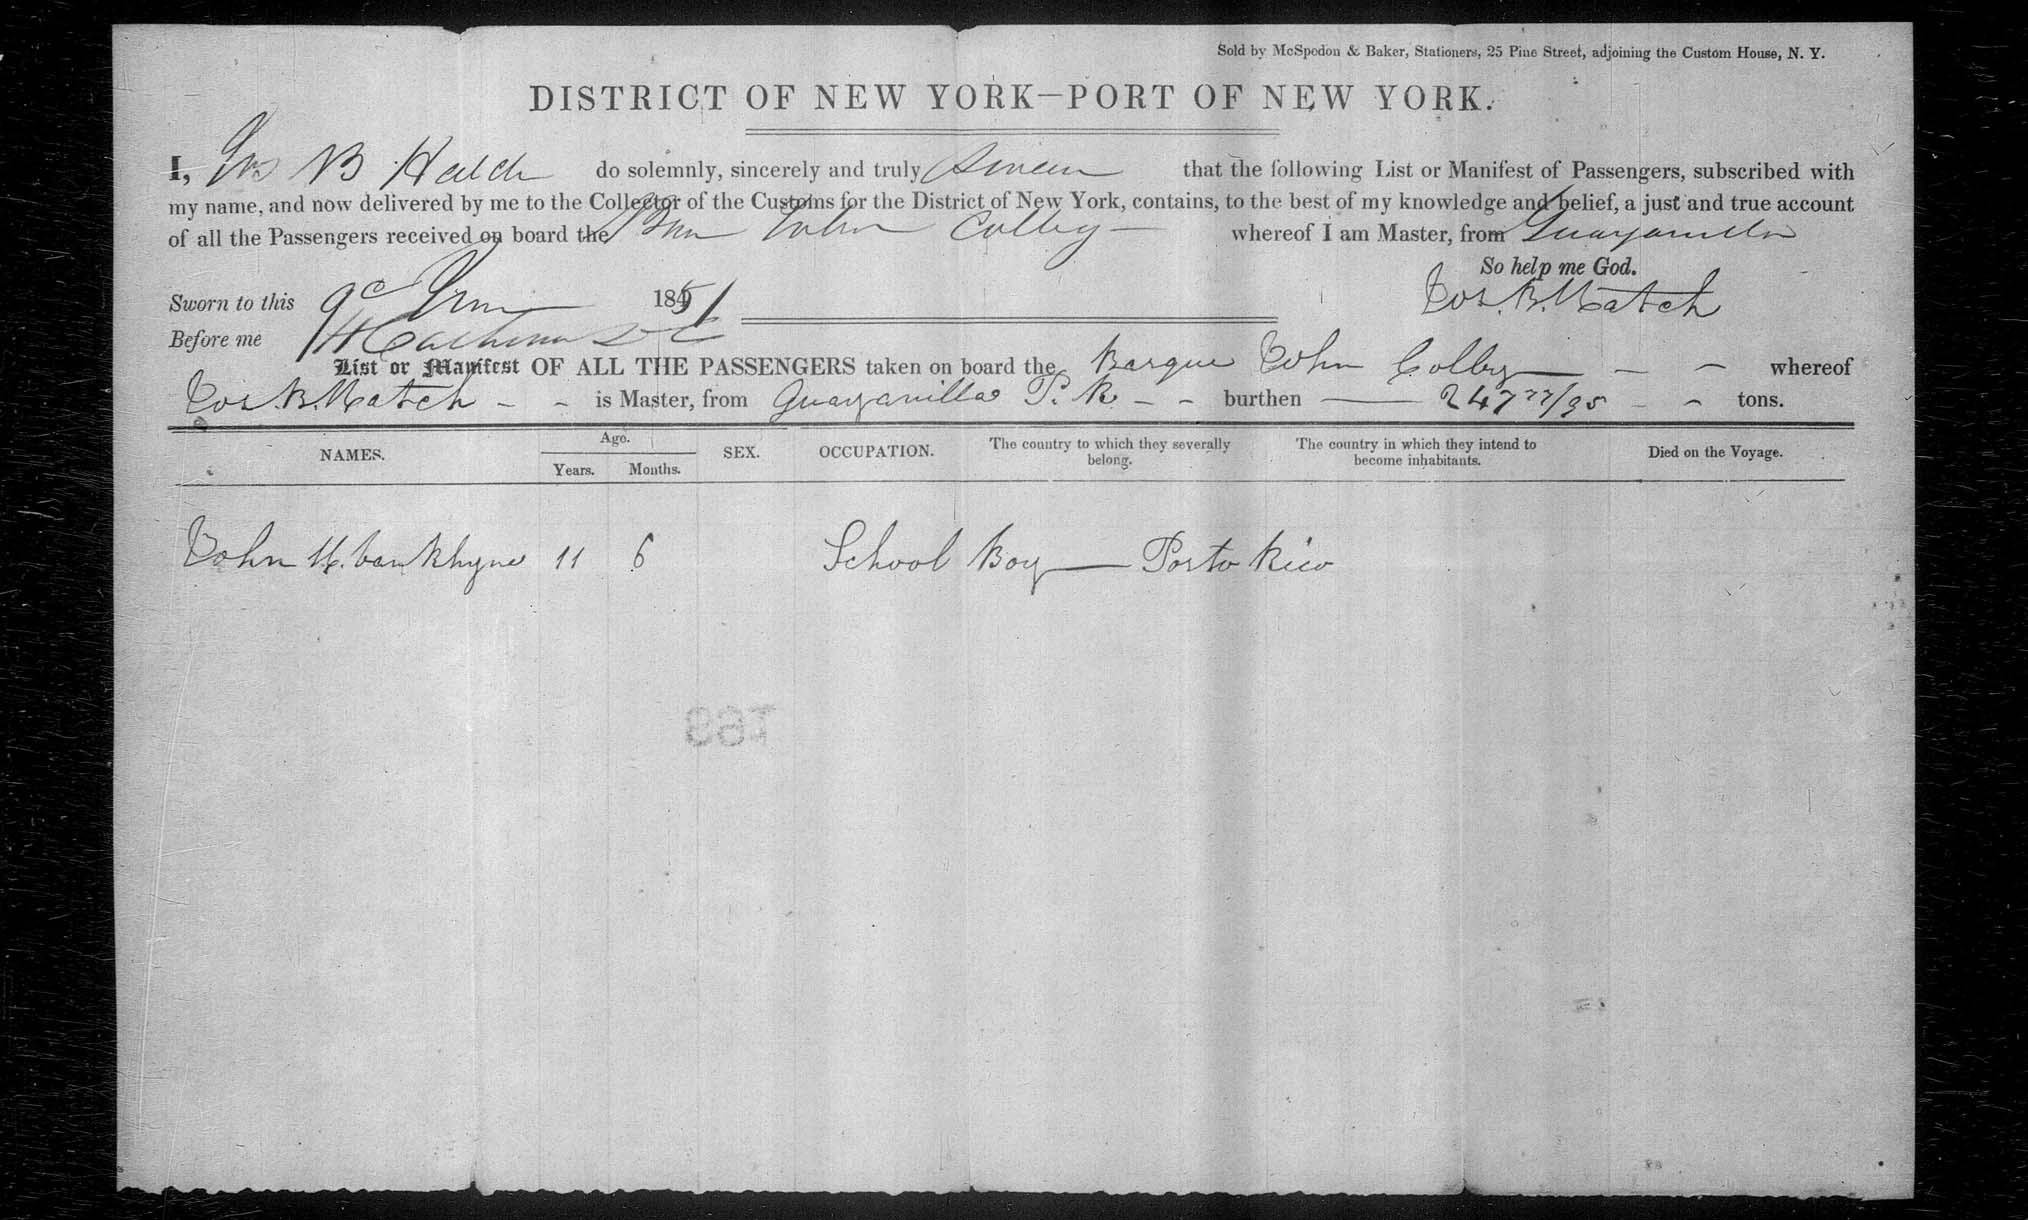 Sold by McSpedon & Baker, Stationers, 25 Pine Street, adjoining the Custom House, N. Y.
DISTRICT OF NEW YORK—PORT OF NEW YORK.
I, Jos B Hatch do solemnly, sincerely and truly swear that the following List or Manifest of Passengers, subscribed with
my name, and now delivered by me to the Collector of the Customs for the District of New York, contains, to the best of my knowledge and belief, a just and true account
of all the Passengers received on board the John Colby whereof I am Master, from Guayanilla
So help me God.
Sworn to this 9 1851 Jos. B. Hatch
Before me
List or Manifest OF ALL THE PASSENGERS taken on board the Barque John Colby — – – whereof
Jos. B. Hatch – – is Master, from Guayanilla P. R – – burthen — 247 77/95 – – tons.
NAMES. Age. Years. Months. SEX. OCCUPATION. The country to which they severally belong. The country in which they intend to become inhabitants. Died on the Voyage.
John H. van Rhyne 11 6 School Boy — Porto Rico
168